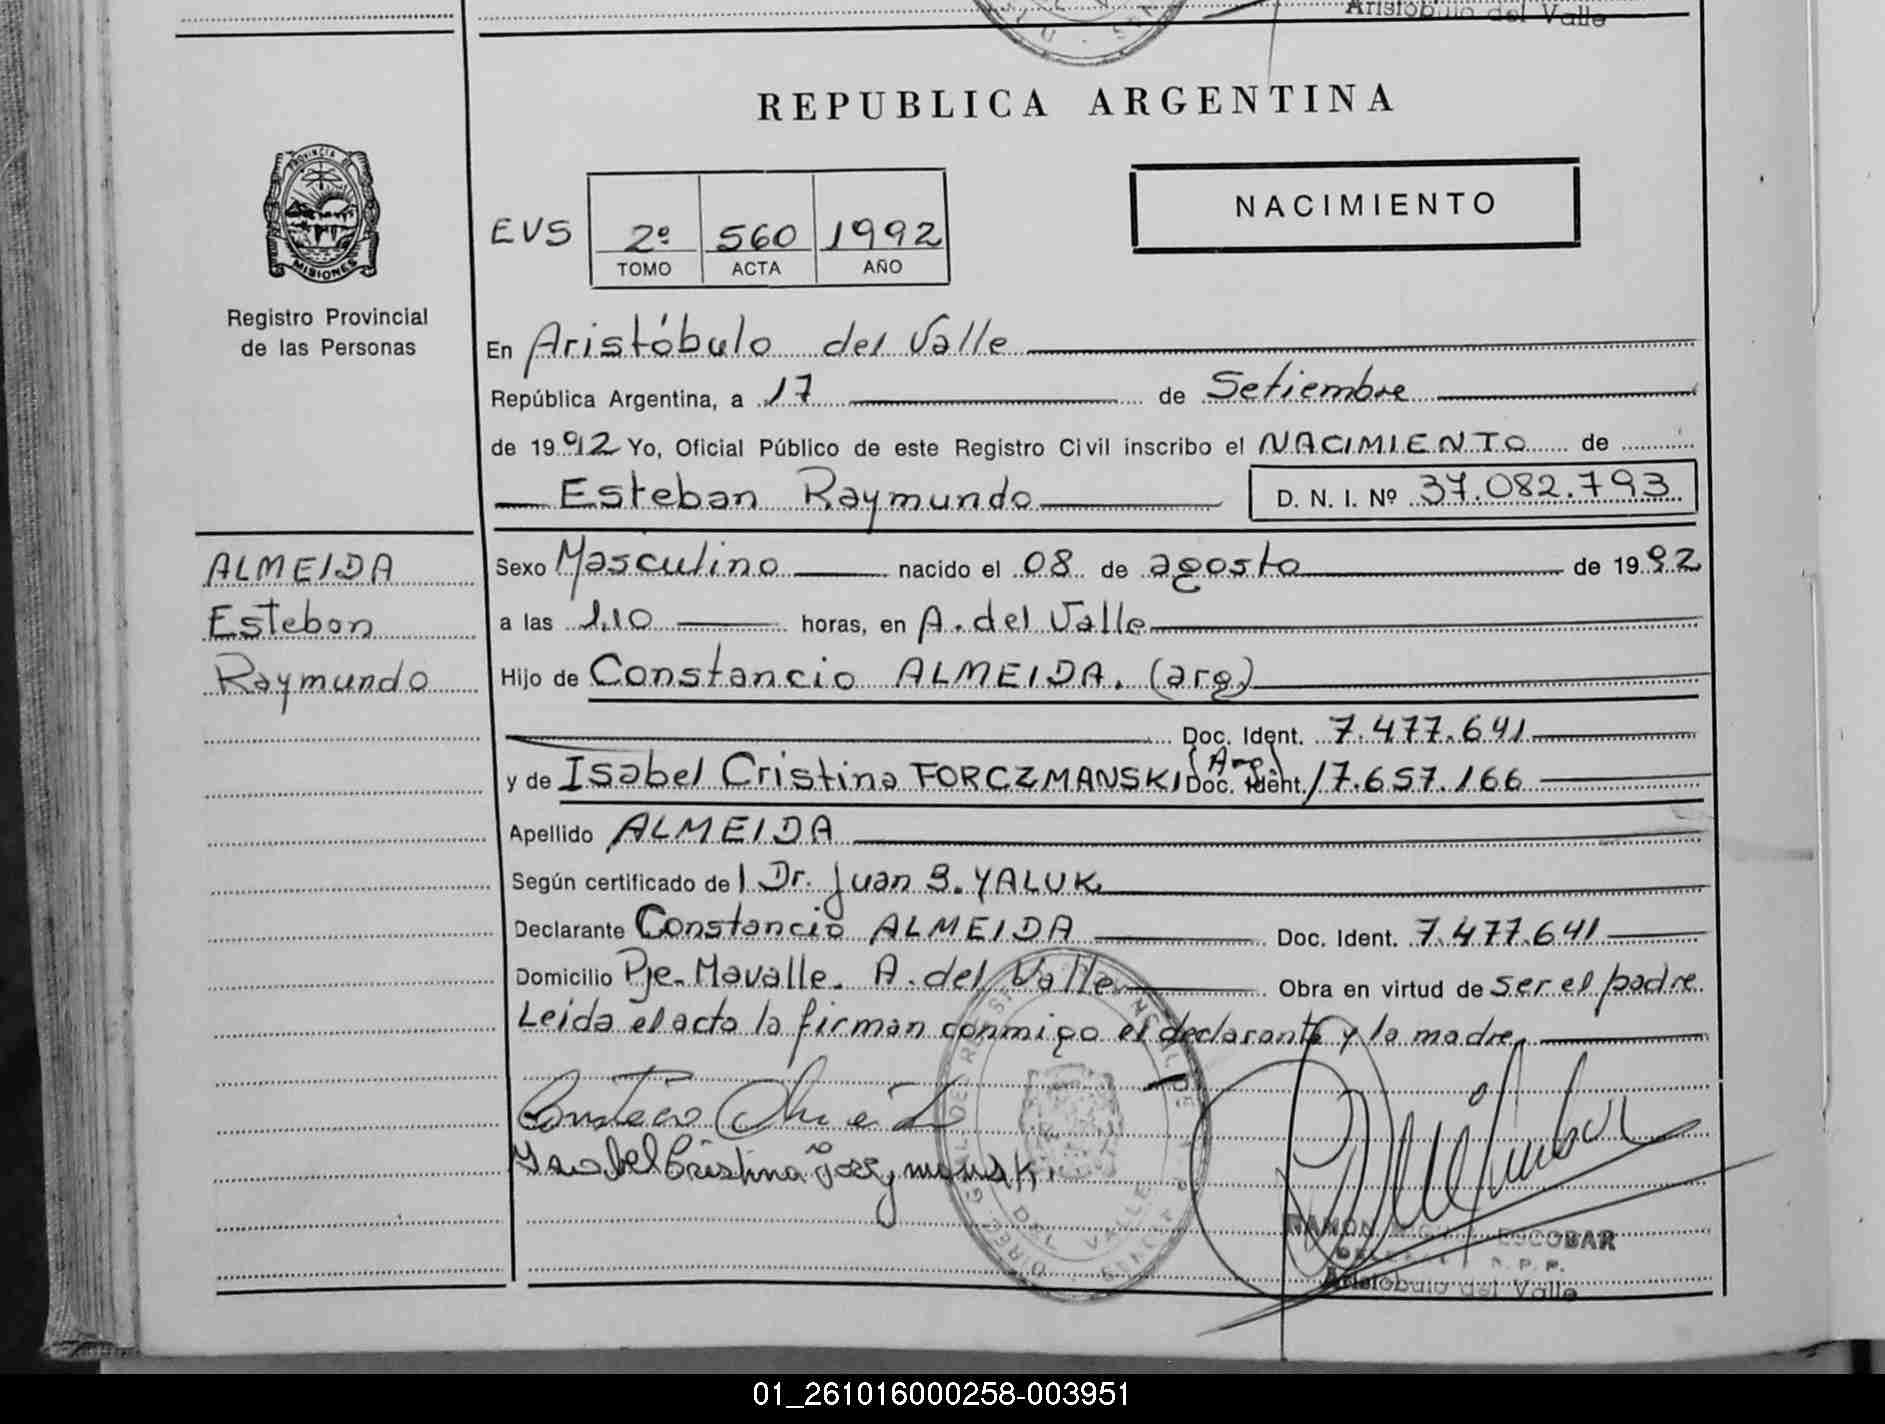 Aristóbulo del Valle
REPUBLICA ARGENTINA
PROVINCIA DE
MISIONES
Registro Provincial
de las Personas
NACIMIENTO
EVS 2º 560 1992
TOMO ACTA AÑO
En Aristóbulo del Valle
República Argentina, a 17 de Setiembre
de 1992 Yo, Oficial Público de este Registro Civil inscribo el NACIMIENTO de
Esteban Raymundo D. N. I. Nº 37.082.793
ALMEIDA
Esteban
Raymundo
Sexo Masculino nacido el 08 de agosto de 1992
a las 1,10 horas, en A. del Valle
Hijo de Constancio ALMEIDA. (arg.)
Doc. Ident. 7.477.641
y de Isabel Cristina FORCZMANSKI (Arg) Doc. Ident. 17.657.166
Apellido ALMEIDA
Según certificado del Dr. Juan B. YALUK
Declarante Constancio ALMEIDA Doc. Ident. 7.477.641
Domicilio Pje. Mavalle. A. del Valle Obra en virtud de ser el padre
Leida el acta la firman conmigo el declarante y la madre
Isabel Cristina
DEL VALLE
RAMON ESCOBAR
R. P. P.
Aristobulo del Valle
01_261016000258-003951